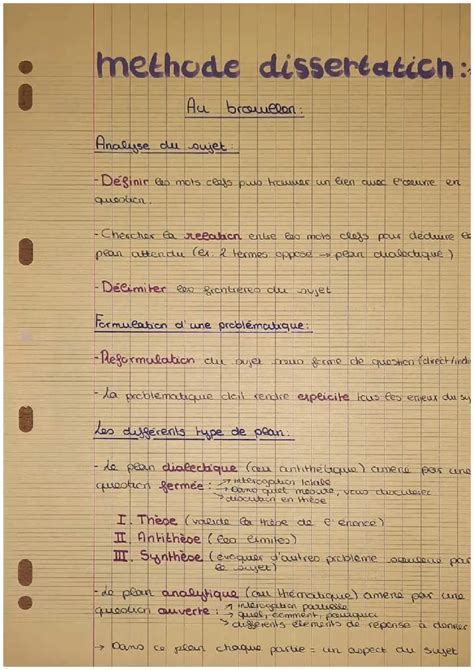 methode dissertation :
Au brouillon :
Analyse du sujet :
- Définir les mots clefs puis trouver un lien avec l'oeuvre en
question.
- Chercher la relation entre les mots clefs pour déduire le
plan attendu (ex: 2 termes opposé → plan dialectique)
- Délimiter les frontières du sujet
Formulation d'une problématique :
- Reformulation du sujet sous forme de question (direct/ind
- La problématique doit rendre explicite tous les enjeux du su
Les différents type de plan :
- Le plan dialectique (ou antithétique) amené par une
question fermée : → interrogation totale
→ Dans quel mesure, vous discuterez
→ discution en thèse
I. Thèse (valide la thèse de l'énoncé)
II. Antithèse (les limites)
III. Synthèse (évoquer d'autres problème soulevé par
le sujet)
- Le plan analytique (ou thématique) amené par une
question ouverte : → interrogation partielle
→ quel, comment, pourquoi
→ différents éléments de réponse à donner
→ Dans ce plan chaque partie = un aspect du sujet